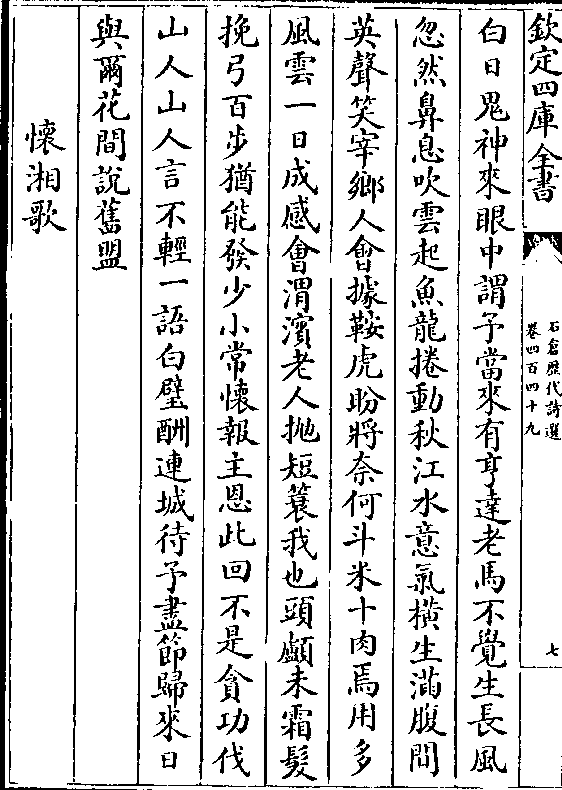 欽定四庫全書
石倉歷代詩選
卷四百四十九
七
白日鬼神來眼中謂予當來有亨達老馬不覺生長風
忽然鼻息吹雲起魚龍捲動秋江水意氣橫生滿腹間
英聲笑宰鄉人會據鞍虎盼將奈何斗米十肉焉用多
風雲一日成感會渭濱老人抛短蓑我也頭顱未霜髮
挽弓百步猶能發少小常懷報主恩此回不是貪功伐
山人山人言不輕一語白璧酬連城待予盡節歸來日
與爾花間說舊盟
懷湘歌